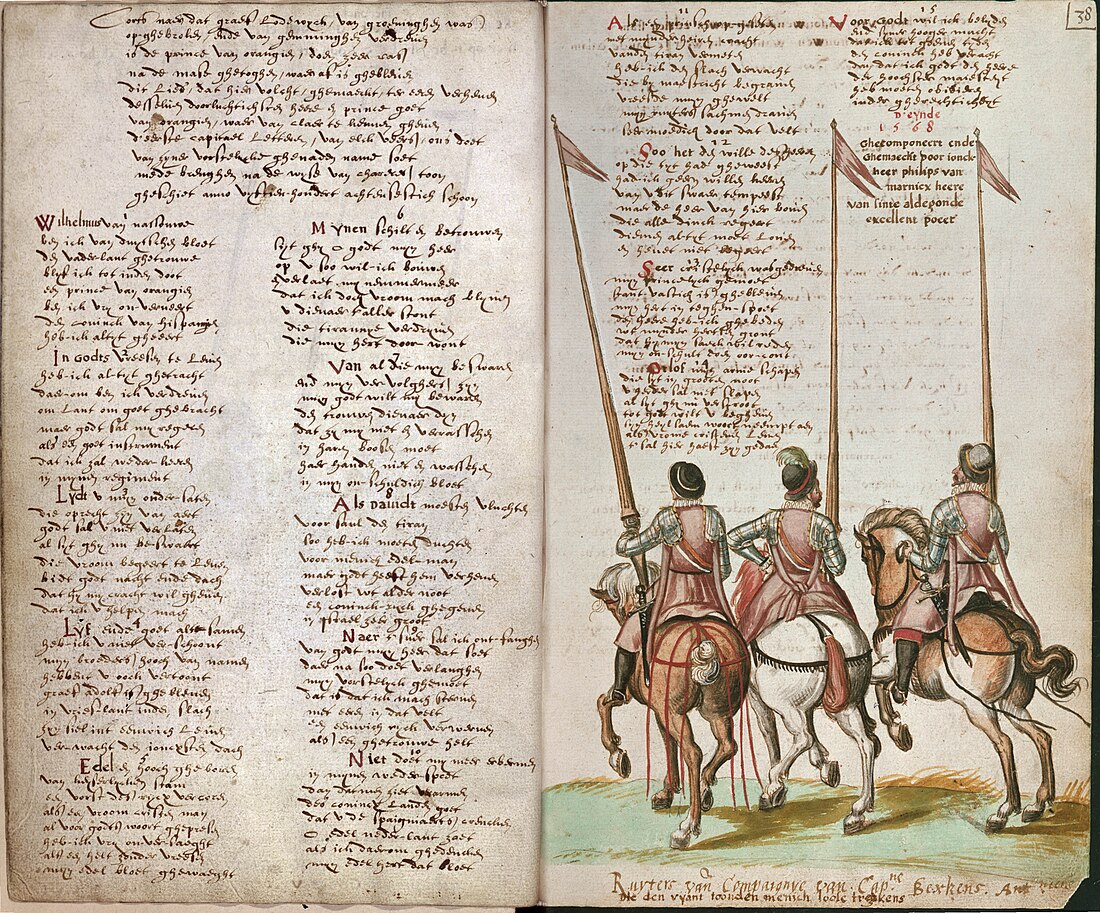 Corts naer dat graef Lodewyck, van groeninghen was
op ghebroken, ende van gemminghen verdreven
is de prince van orangien, doen zeer ras
na de mase ghetoghen, waer af is ghebleven
dit Lied, dat hier volcht, ghemaeckt, ter eeren verheven
desselven doorluchtichsten heere en prince goet
van orangien, waer van claer te kennen gheven
d'eerste capitael Letteren, van elck veers, ons doet
van syne vorstelycke ghenaden name soet
mede brenghen na de wyse van chartres, toon
gheschiet anno vyftien hondert achtensestich schoon
Wilhelmus van nassouwe
ben ick van duytschen bloet
den vaderlant ghetrouwe
blyf ick tot inden doot
een prince van orangien
ben ick vry onverveert
den coninck van hispangien
heb ick altyt gheeert
In godts vreesen te Leven
heb ick altyt ghetracht
daerom ben ick verdreven
om Lant om goet ghebracht
maer godt sal my regeren
als een goet instrument
dat ick zal wederkeeren
in mynen regiment
Lydt u myn ondersaten
die oprecht zyn van aert
godt sal u niet verlaten
al syt ghy nu beswaert
die vroom begeert te Leven
bidt godt nacht ende dach
dat hy my cracht wil gheven
dat ick u helpen mach
Lyf ende goet al te samen 4
heb ick u niet verschoont
myn broeders hooch van namen
hebbent u oock vertoont
graef adolf is ghebleven
in vrieslant inden slach
zyn siel int eewich Leven
verwacht den jonxsten dach
Edel en hooch gheboren 5
van keyserlycken stam
een vorst des ryx vercoren
als een vroom cristen man
al voor godts woort ghepresen
heb ick vry onversaeght
als een helt zonder vreesen
myn edel bloet ghewaeght
6
Mynen schilt en betrouwen
syt ghy o godt myn heer
op u soo wil ick bouwen
verlaet my nemmermeer
dat ick doch vroom mach blyven
u dienaer t'aller stont
die tirannye verdryven
die myn hert doorwont
Van al die my beswaren 7
end myn vervolghers zyn
myn godt wilt my bewaren
den trouwen dienaer dyn
dat zy my niet en verrasschen
in haren boosen moet
haer handen niet en wasschen
in myn onschuldich bloet
Als david moeste vluchten 8
voor saul den tiran
soo heb ick moeten duchten
voor menich edelman
maer godt heeft hem verheven
verlost wt alder noot
een coninckryck ghegeven
in israel zeer groot
Naer t'suer sal ick ontfanghen
van godt myn heer dat soet
daer na soo doet verlanghen
myn vorstelyck ghemoet
dat is dat ick mach sterven
met eeren in dat velt
een eewich ryck verwerven
als een ghetrouwe helt
Niet doet my meer erbermen
in mynen wederspoet
dan datmen siet verarmen
des conincx Landen goet
dat u de spaigniaerts crencken
o edel nederlant zoet
als ick daerom ghedencke
myn edel hert dat bloet
11
Als een prins hoop geseten
met myn heyrs cracht
vanden tiran vermeten
heb ick den slach verwacht
die by maestricht begraven
vreesde myn ghewelt
myn ruyters sachmen draven
seer moedich door dat velt
12
Soo het den wille des heeren
op die tyt had gheweest
had ick geern willen keeren
van u dit swaer tempeest
maer de heer van hier boven
die alle dinck regeert
diemen altyt moet Loven
en heuet niet begeert
Seer cristelyck was gedreven
myn princelyck gemoet
stantvastich is ghebleven
myn hert in teghenspoet
den heere heb ick ghebeden
wt mynder herten gront
dat hy myn saeck wil reden
myn onschult doen oorcont
Orlof myn arme schapen
die syt in grooten noot
u herder sal niet slapen
al syt ghy nu verstroyt
tot godt wilt u begheven
syn heylsaem woort neempt aen
als vrome cristenen Leven
t' sal hier haest zyn gedaen
15
Voor godt wil ick belyden
end syner hooger macht
dat ick tot geenen tyden
den coninck heb veracht
dan dat ick godt den heere
der hoochster maiesteyt
heb moeten obedieren
inder gherechticheyt
D'eynde
1568
Ghecomponeert ende
Ghemaeckt door jonck
heer philips van
marnicx heere
van sinte aldegonde
excellent poeet
38
Ruyters van Compaignye van Cap:ne Beckens.
Die den vyant conden menich loose trecken